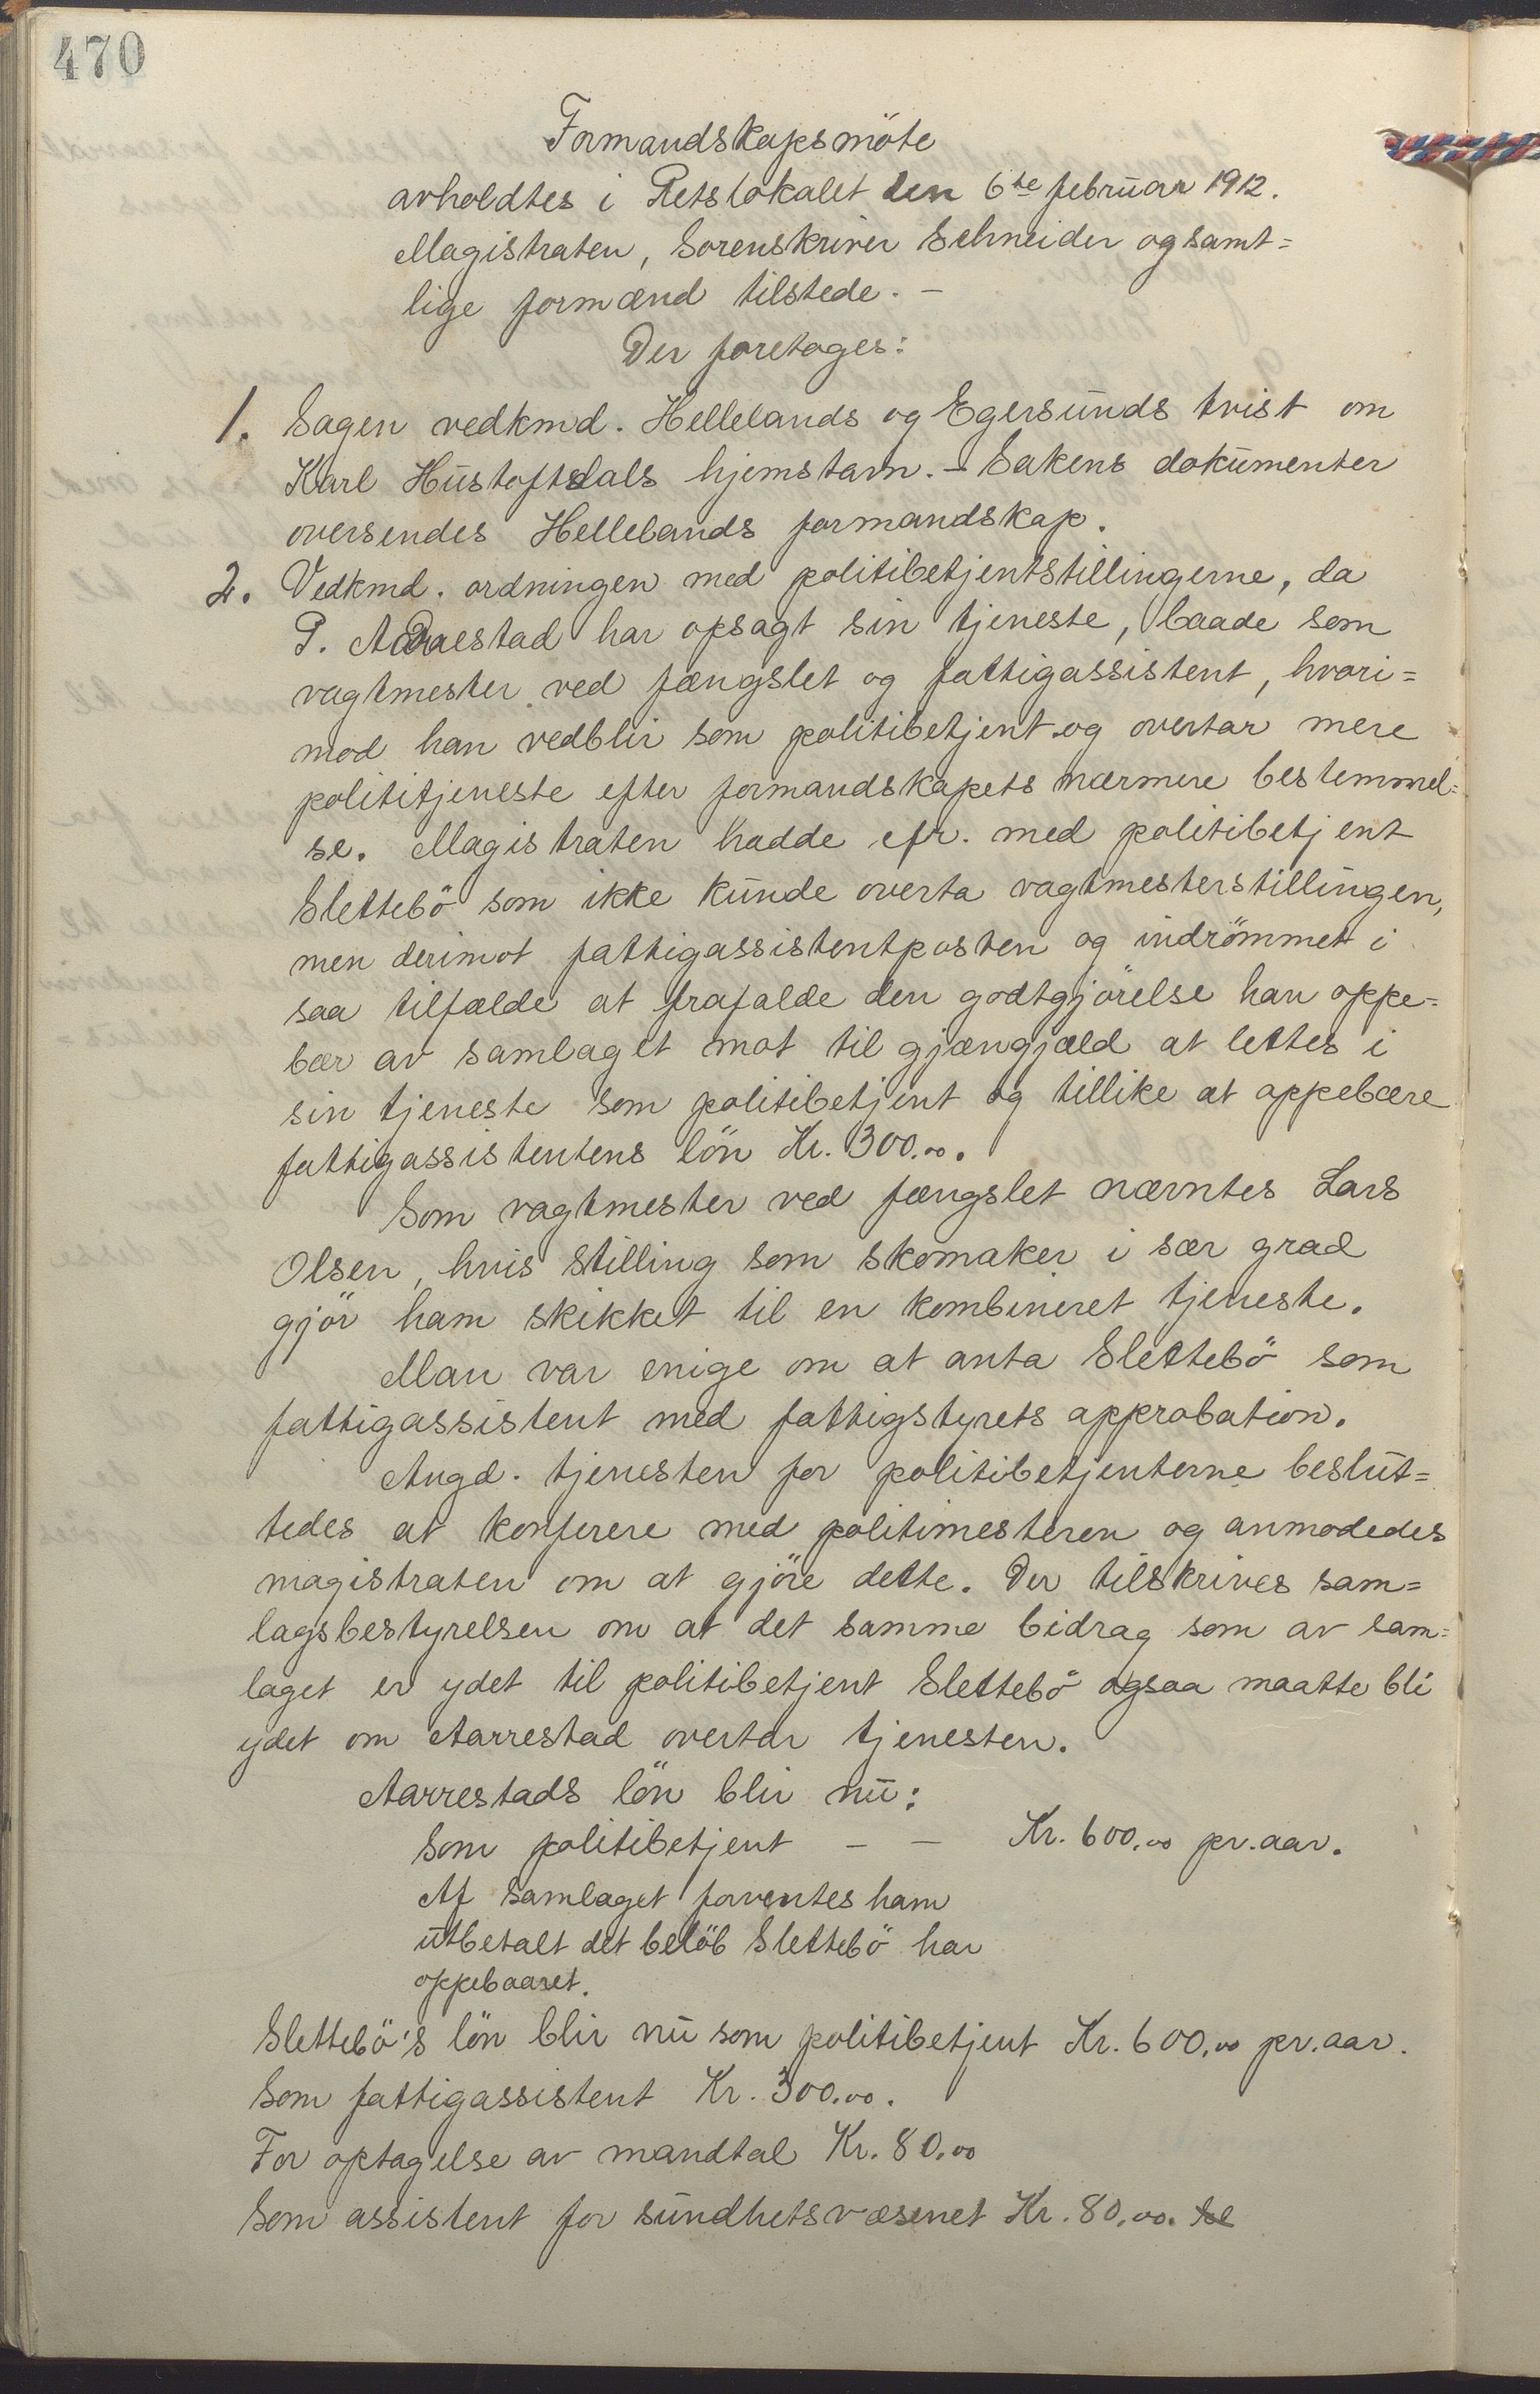 470
Formandskapsmöte
avholdtes i Retslokalet den 6te februar 1912.
Magistraten, Sorenskriver Schneider og samt=
lige formænd tilstede. –
Der foretages:
1. Sagen vedkmd. Hellelands og Egersunds tvist om
Karl Hustoftdals hjemstavn. – Sakens dokumenter
oversendes Hellelands formandskap.
2. Vedkmd. ordningen med politibetjentstillingerne, da
P. Aarrestad har opsagt sin tjeneste, baade som
vagtmester ved fængslet og fattigassistent, hvori=
mod han vedblir som politibetjent og overtar mere
polititjeneste efter formandskapets nærmere bestemmel=
se. Magistraten hadde cfr. med politibetjent
Slettebö som ikke kunde overta vagtmesterstillingen,
men derimot fattigassistentposten og indrömmet i
saa tilfælde at frafalde den godtgjörelse han oppe=
bær av samlaget mot til gjængjæld at lettes i
sin tjeneste som politibetjent og tillike at oppebære
fattigassistentens lön Kr. 300.00.
Som vagtmester ved fængslet nævntes Lars
Olsen, hvis stilling som skomaker i sær grad
gjör ham skikket til en kombineret tjeneste.
Man var enige om at anta Slettebö som
fattigassistent med fattigstyrets approbation.
Angd. tjenesten for politibetjenterne beslut=
tedes at konferere med politimesteren og anmodedes
magistraten om at gjöre dette. Der tilskrives sam=
lagsbestyrelsen om at det samme bidrag som av sam=
laget er ydet til politibetjent Slettebö ogsaa maatte bli
ydet om Aarrestad overtar tjenesten.
Aarrestads lön blir nu:
Som politibetjent – – Kr. 600.00 pr. aar.
Af samlaget forventes ham
utbetalt det belöb Slettebö har
oppebaaret.
Slettebö's lön blir nu som politibetjent Kr. 600.00 pr. aar.
Som fattigassistent Kr. 300.00.
For optagelse av mandtal Kr. 80.00
Som assistent for sundhetsvæsenet Kr. 80.00.